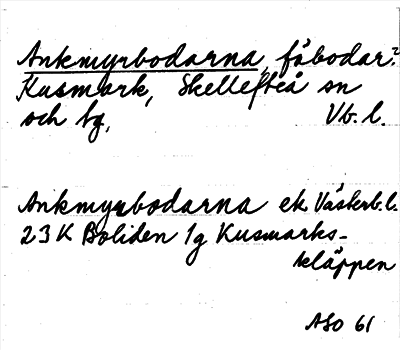 Ankmyrbodarna, fäbodar?
Kusmark, Skellefteå sn
och tg, Vb. l.
Ankmyrbodarna ek. Västerb. l.
23 K Boliden 1g Kusmarks-
kläppen
ASO 61